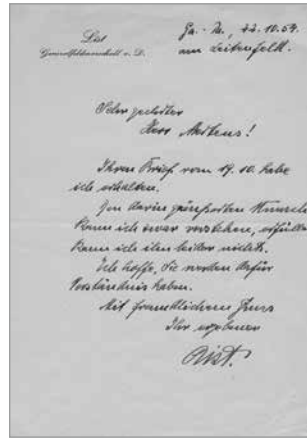 List
Generalfeldmarschall a. D.
Ga.-Pa., 22.10.59.
am Leitenfeld 11.
Sehr geehrter
Herr Mertens!
Ihren Brief vom 19.10. habe
ich erhalten.
Den darin geäußerten Wunsch
kann ich zwar verstehen, erfüllen
kann ich ihn leider nicht.
Ich hoffe, Sie werden dafür
Verständnis haben.
Mit freundlichem Gruss
Ihr ergebener
List.